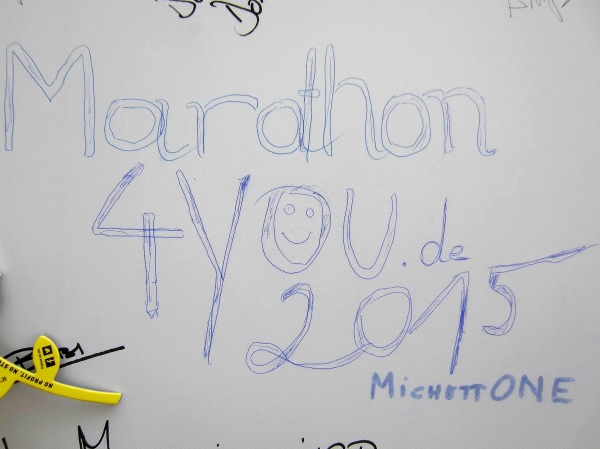 Marathon
4YOU.de
2015
MichettONE
NO PROFIT. NO